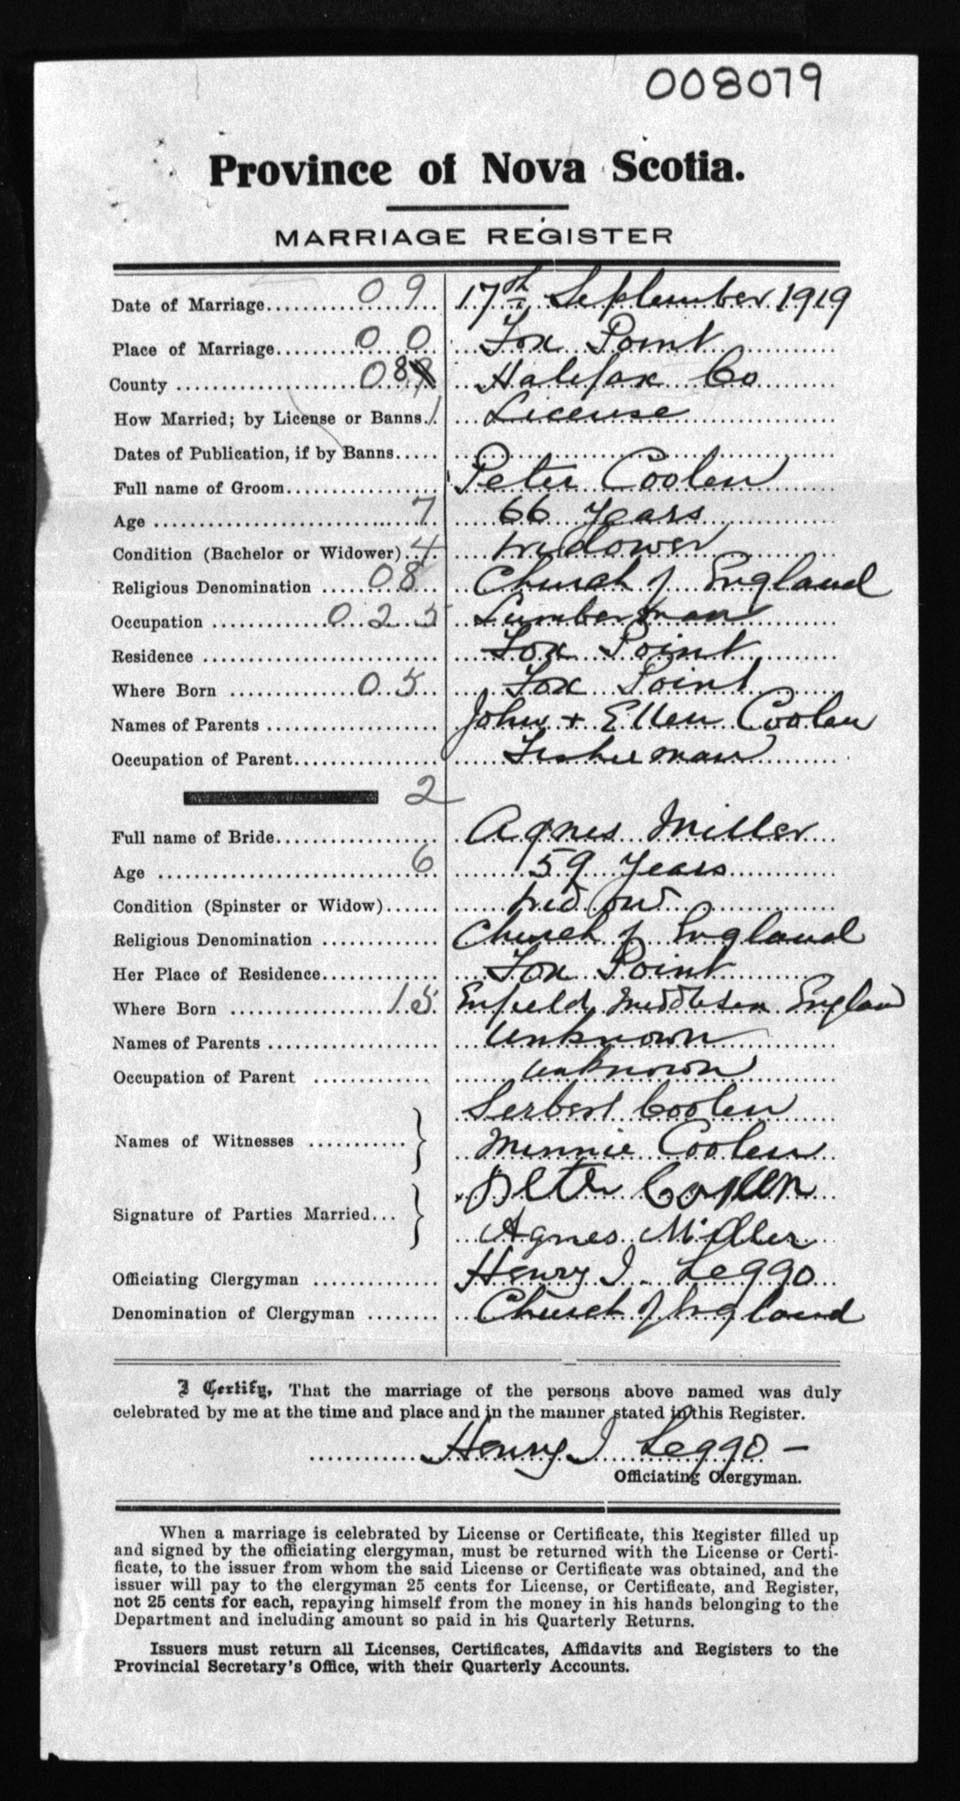 008079
Province of Nova Scotia.
MARRIAGE REGISTER
Date of Marriage 09 17th September 1919
Place of Marriage 00 Fox Point
County 08 Halifax Co
How Married; by License or Banns 1 License
Dates of Publication, if by Banns
Full name of Groom Peter Coolen
Age 7 66 years
Condition (Bachelor or Widower) 4 widower
Religious Denomination 08 Church of England
Occupation 025 Lumberman
Residence Fox Point
Where Born 05 Fox Point
Names of Parents John + Ellen Coolen
Occupation of Parent Fisherman
2
Full name of Bride Agnes Miller
Age 6 59 years
Condition (Spinster or Widow) widow
Religious Denomination Church of England
Her Place of Residence Fox Point
Where Born 15 Enfield Middlesex England
Names of Parents unknown
Occupation of Parent unknown
Names of Witnesses Coolen
Minnie Coolen
Signature of Parties Married Peter Coolen
Agnes Miller
Officiating Clergyman Henry I. Leggo
Denomination of Clergyman Church of England
I Certify, That the marriage of the persons above named was duly
celebrated by me at the time and place and in the manner stated in this Register.
Henry I Leggo —
Officiating Clergyman.
When a marriage is celebrated by License or Certificate, this Register filled up
and signed by the officiating clergyman, must be returned with the License or Certi-
ficate, to the issuer from whom the said License or Certificate was obtained, and the
issuer will pay to the clergyman 25 cents for License, or Certificate, and Register,
not 25 cents for each, repaying himself from the money in his hands belonging to the
Department and including amount so paid in his Quarterly Returns.
Issuers must return all Licenses, Certificates, Affidavits and Registers to the
Provincial Secretary's Office, with their Quarterly Accounts.